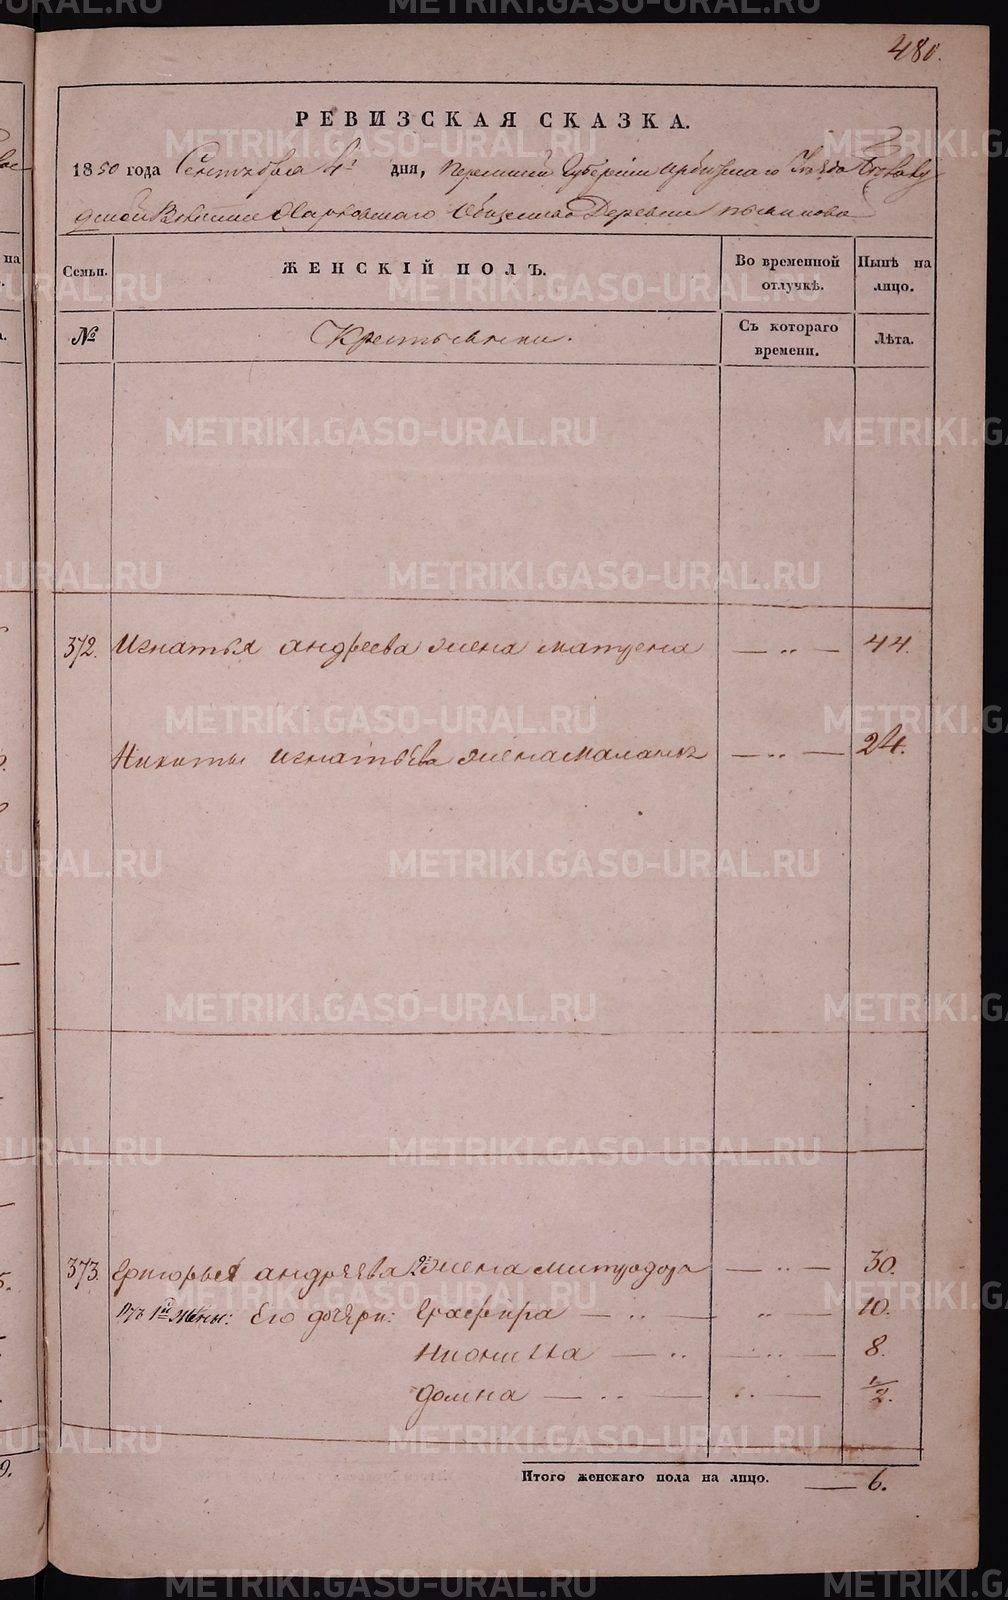 480.
РЕВИЗСКАЯ СКАЗКА.
1850 года Сентября 4 дня, Пермской Губернии Ирбитскаго Уезда
Волости Харловскаго Общества Деревни
Семьи.
ЖЕНСКІЙ ПОЛЪ.
Во временной отлучкѣ.
Нынѣ на лицо.
№
Крестьянки.
Съ котораго времени.
Лѣта.
372. Игнатья андреева жена матрена — „ — 44.
Никиты игнатьева жена маланья — „ — 24.
373. Григорья андреева 2я жена митродора — „ — 30.
изъ 1й жены: Его дочери: Глафира — „ — „ — 10.
— „ — „ — 8.
домна — „ — „ — 1/2.
Итого женскаго пола на лицо. — 6.
METRIKI.GASO-URAL.RU